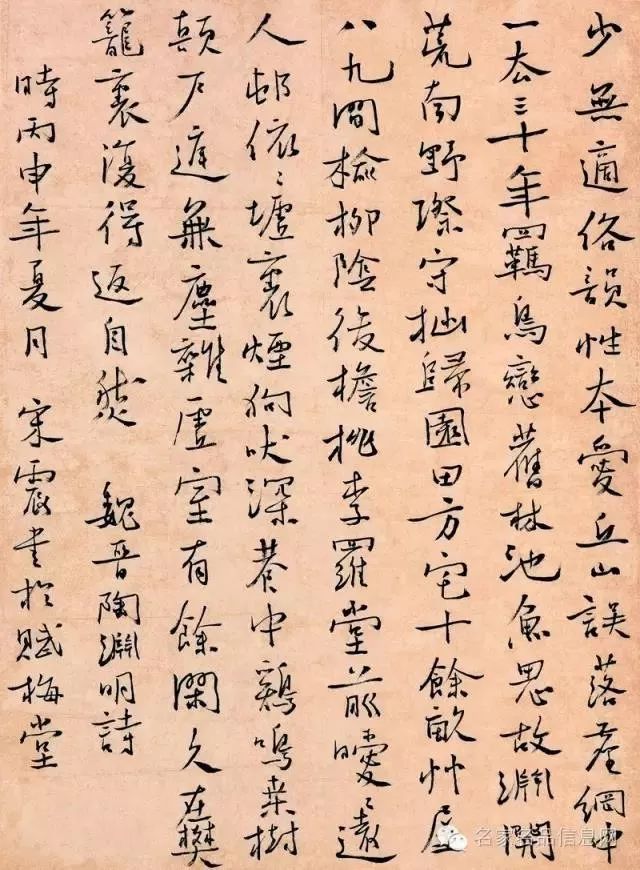 少無適俗韻性本愛丘山誤落塵網中
一去三十年羈鳥戀舊林池魚思故淵開
荒南野際守拙歸園田方宅十餘畝艸屋
八九間榆柳陰後檐桃李羅堂前曖〻遠
人邨依〻墟裏煙狗吠深巷中鷄鳴桑樹
顛戶庭無塵雜虛室有餘閑久在樊
籠裏復得返自然 魏晉陶淵明詩
時丙申年夏月 宋震書於賦梅堂
名家名品信息网